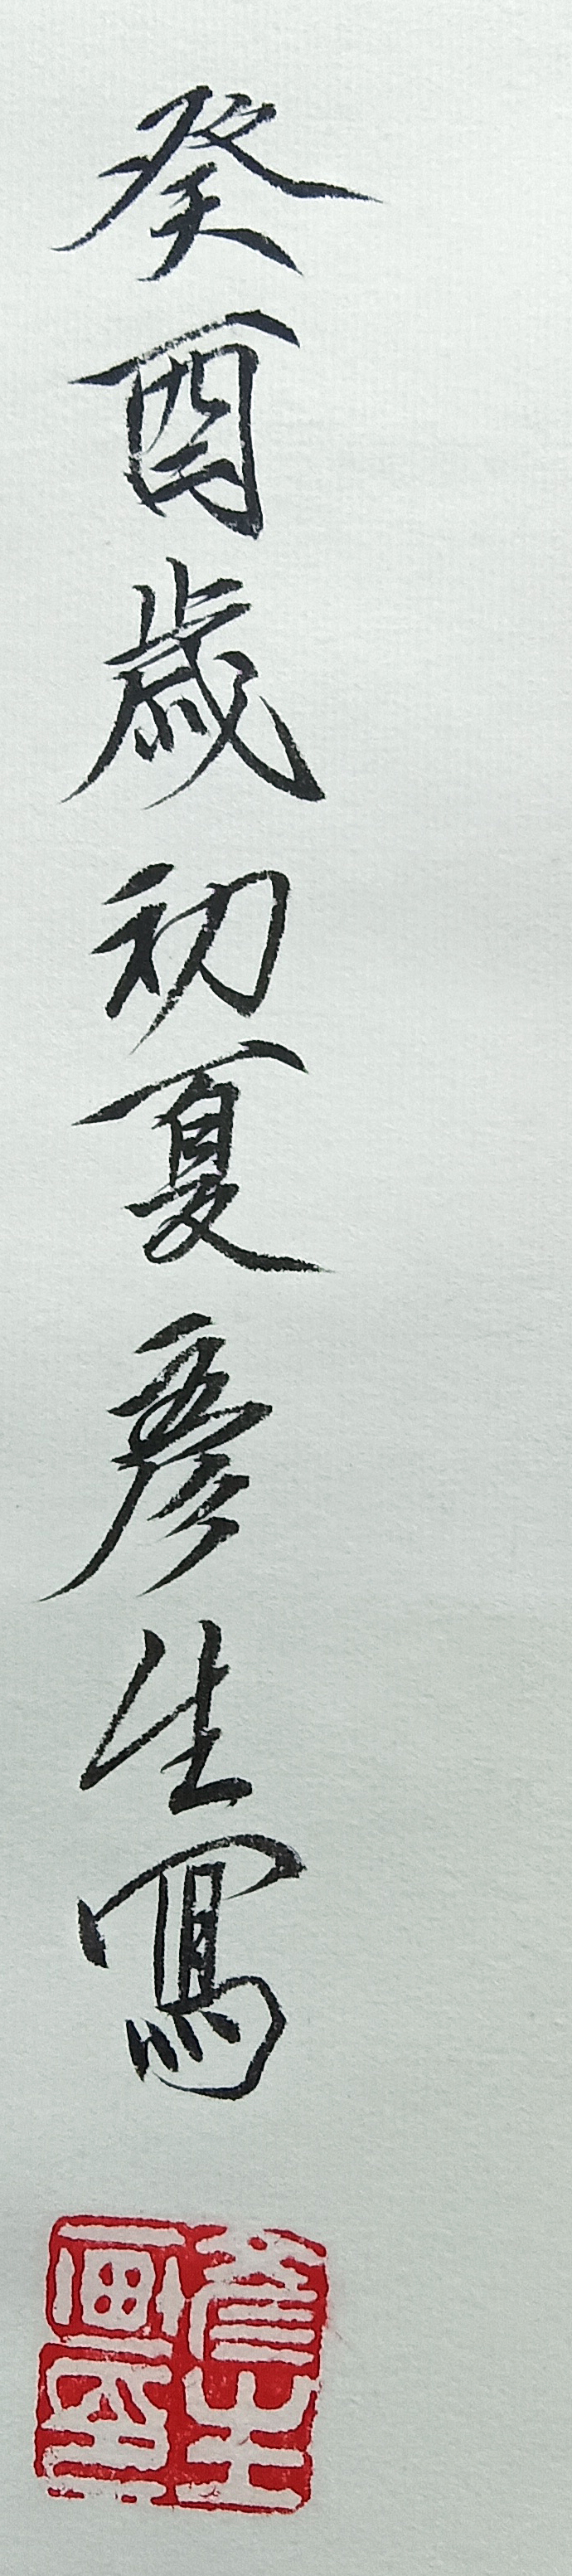 癸酉歲初夏彥生寫
彥生
畫印